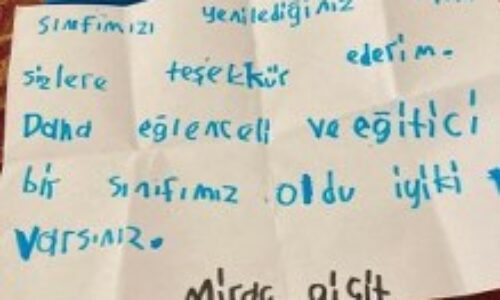 sınıfımızı yenilediğiniz
sizlere teşekkür ederim.
Daha eğlenceli ve eğitici
bir sınıfımız oldu iyiki
varsınız.